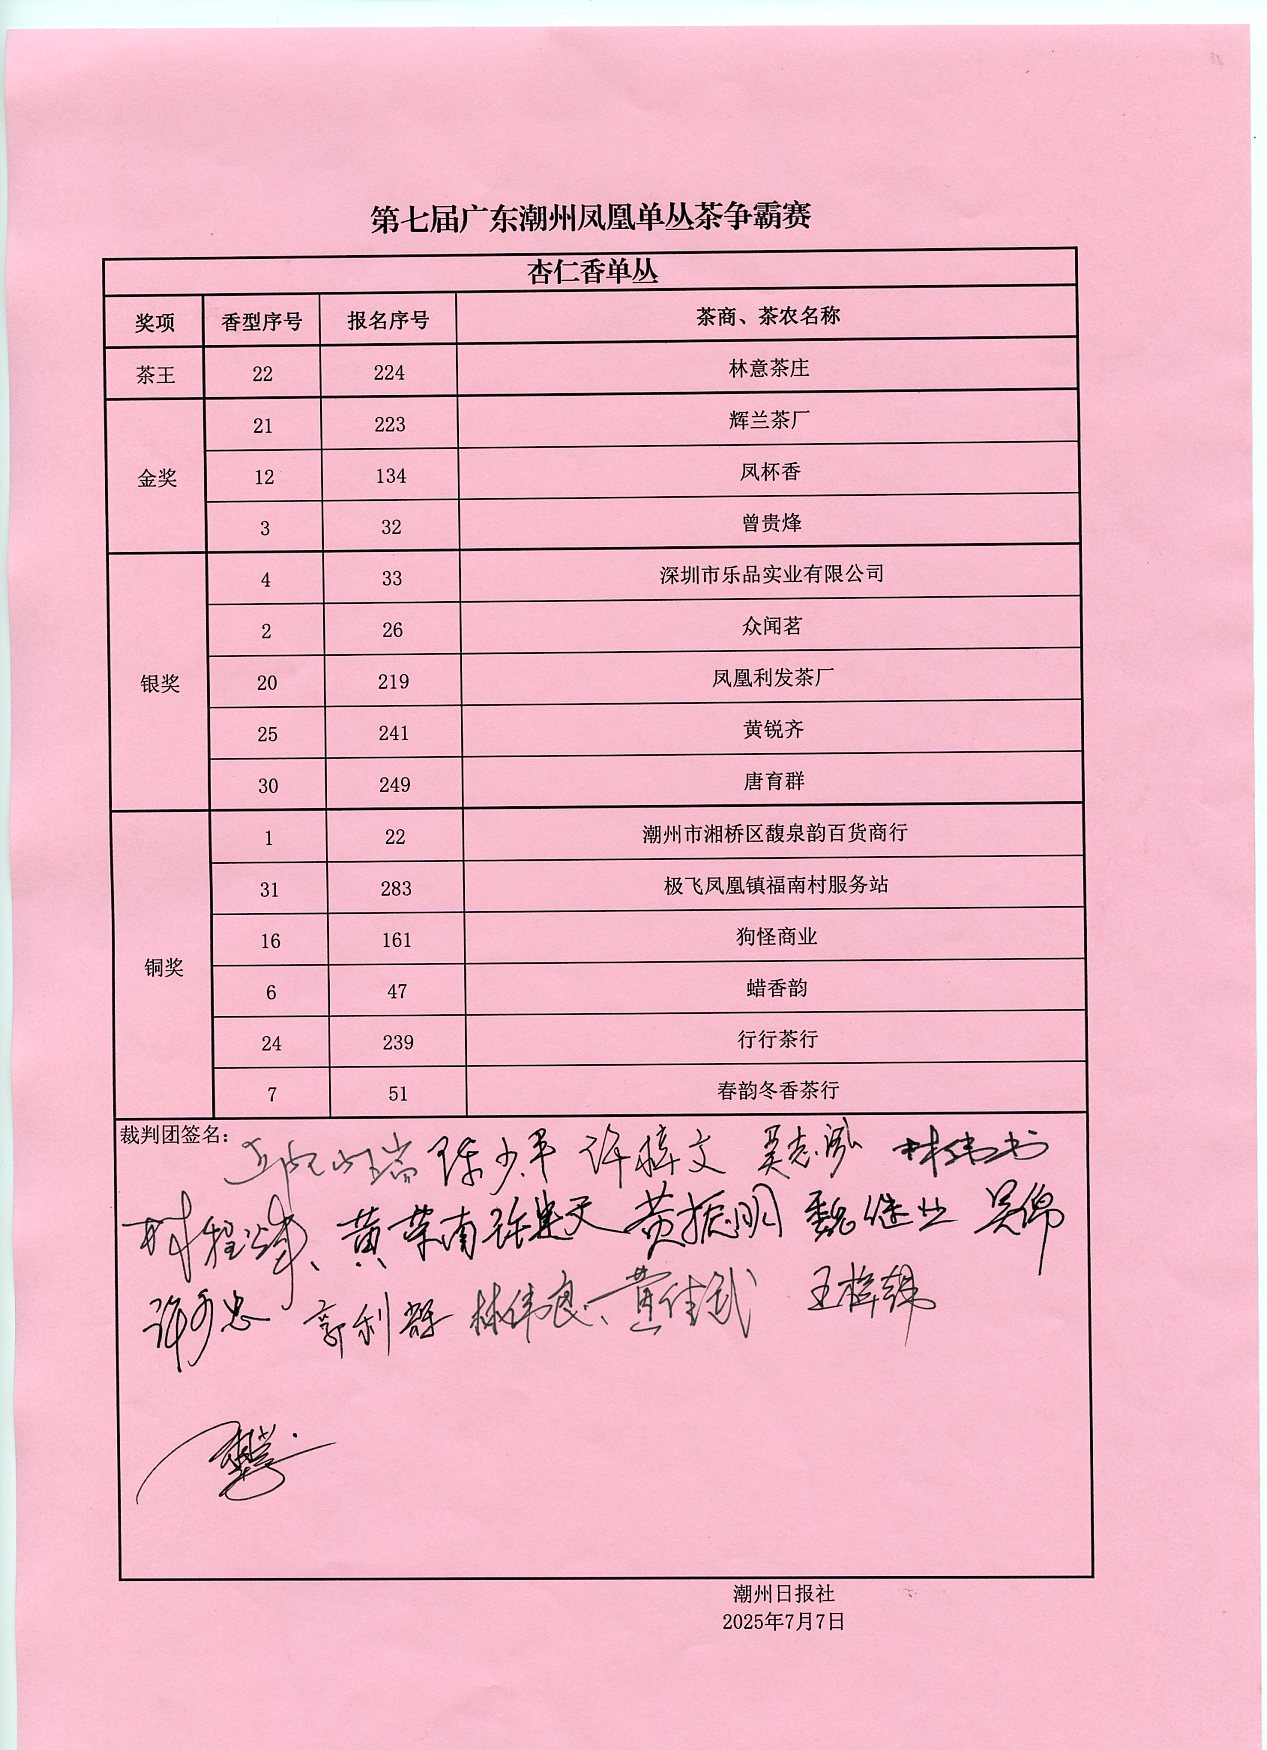 第七届广东潮州凤凰单丛茶争霸赛
杏仁香单丛
奖项 香型序号 报名序号 茶商、茶农名称
茶王 22 224 林意茶庄
21 223 辉兰茶厂
金奖 12 134 凤杯香
3 32 曾贵烽
4 33 深圳市乐品实业有限公司
2 26 众闻茗
银奖 20 219 凤凰利发茶厂
25 241 黄锐齐
30 249 唐育群
1 22 潮州市湘桥区馥泉韵百货商行
31 283 极飞凤凰镇福南村服务站
16 161 狗怪商业
铜奖 6 47 蜡香韵
24 239 行行茶行
7 51 春韵冬香茶行
裁判团签名：
陈少平 许梓文 吴志泓 林伟书
黄荣南 黄振明 魏继业 吴锦
林伟良、黄佳武 王梓
潮州日报社
2025年7月7日